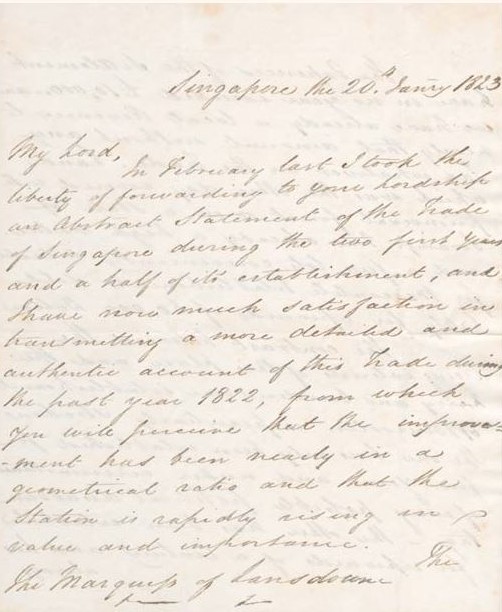 Singapore the 20th Janry 1823
My Lord,
In February last I took the
liberty of forwarding to your Lordship
an Abstract Statement of the Trade
of Singapore during the two first Years
and a half of its establishment, and
I have now much satisfaction in
transmitting a more detailed and
authentic account of this Trade during
the past year 1822, from which
you will perceive that the improve-
-ment has been nearly in a
geometrical ratio and that the
Station is rapidly rising in
value and importance.
The
The Marquess of Lansdowne